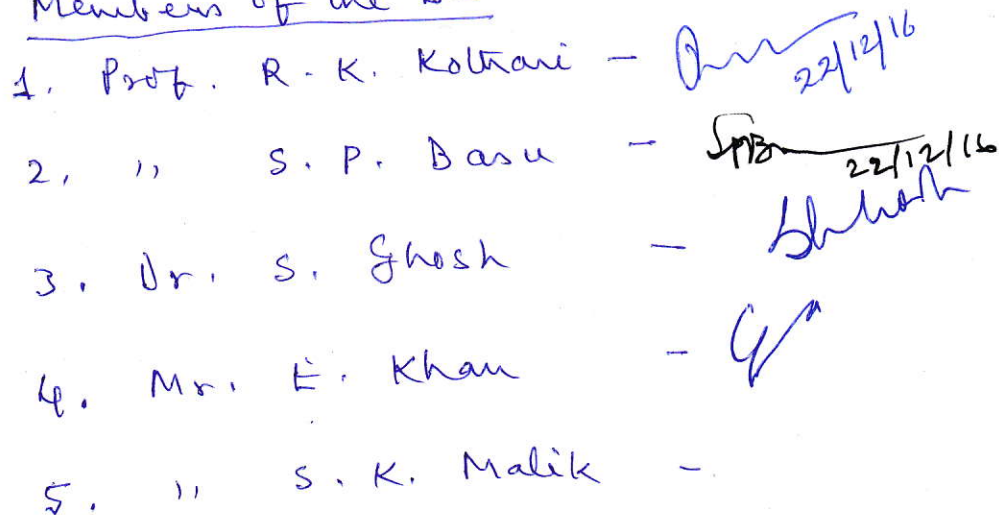 Members of the
1. Prof. R. K. Kothari - 22/12/16
2, " S. P. Basu - SPB 22/12/16
3. Dr. S. Ghosh -
4. Mr. E. Khan -
5. " S. K. Malik -